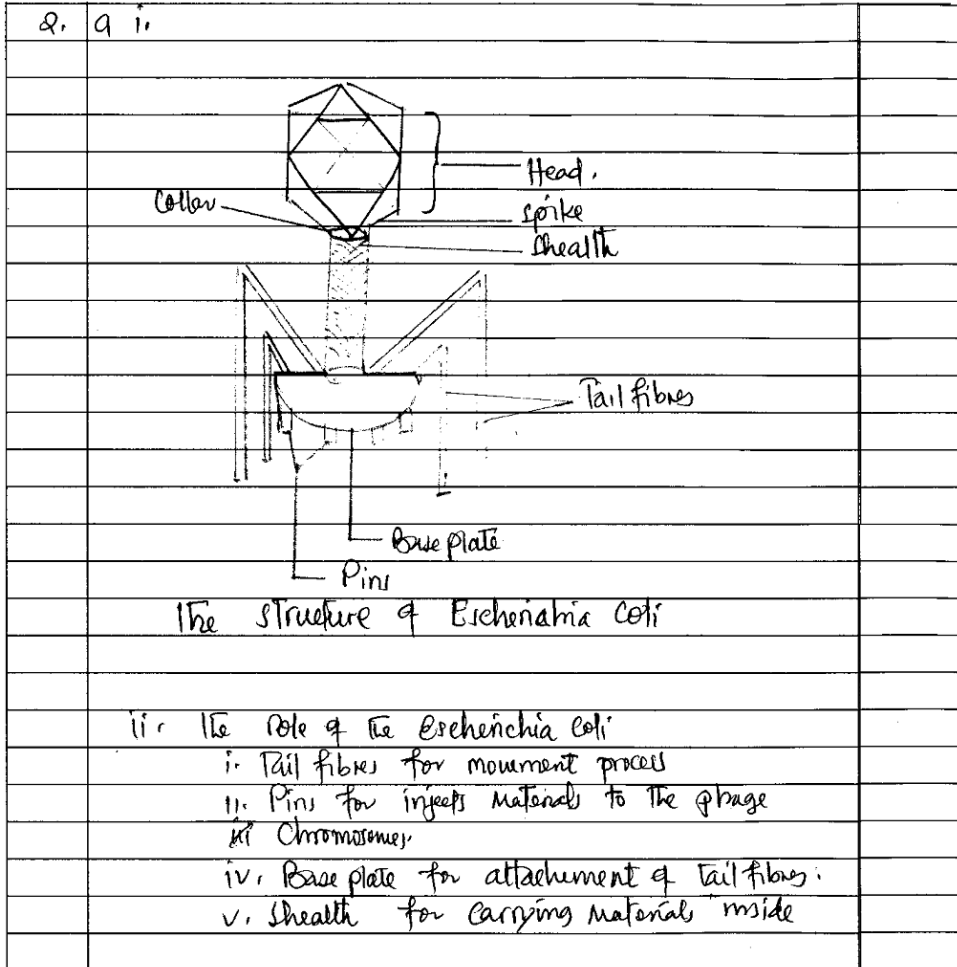 2. a i.
Head.
Coller
spike
shealth
Tail fibres
Base plate
Pins
The structure of Escheriahia Coli
ii. The role of the Escherichia coli
i. Tail fibres for movument process
ii. Pins for injects materials to the phage
iii Chromosomes.
iv. Base plate for attachement of tail fibres.
v. shealth for carrying materials inside